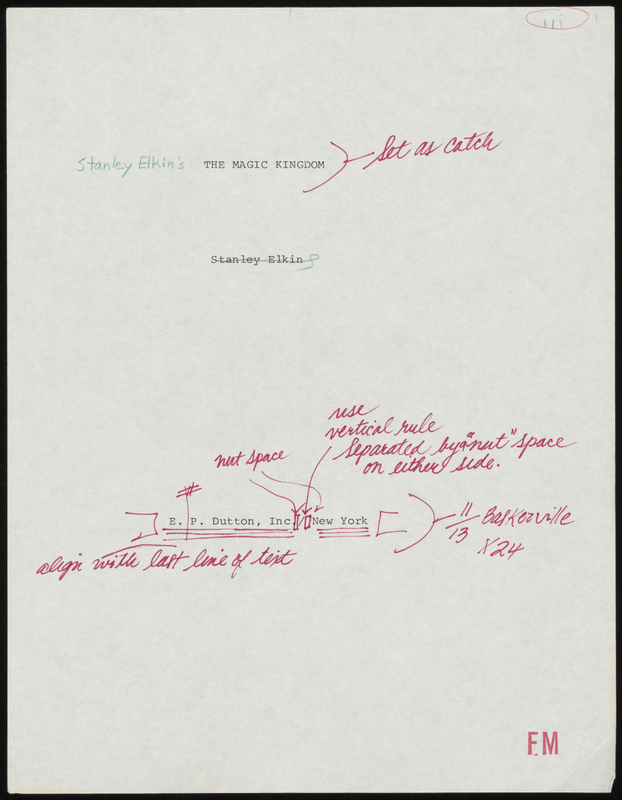 iii
Stanley Elkin's THE MAGIC KINGDOM
Set as catch
Stanley Elkin
use
vertical rule
separated by a "nut" space
on either side.
nut space
#
E. P. Dutton, Inc. / New York
11/13 Baskerville
X 24
align with last line of text
FM